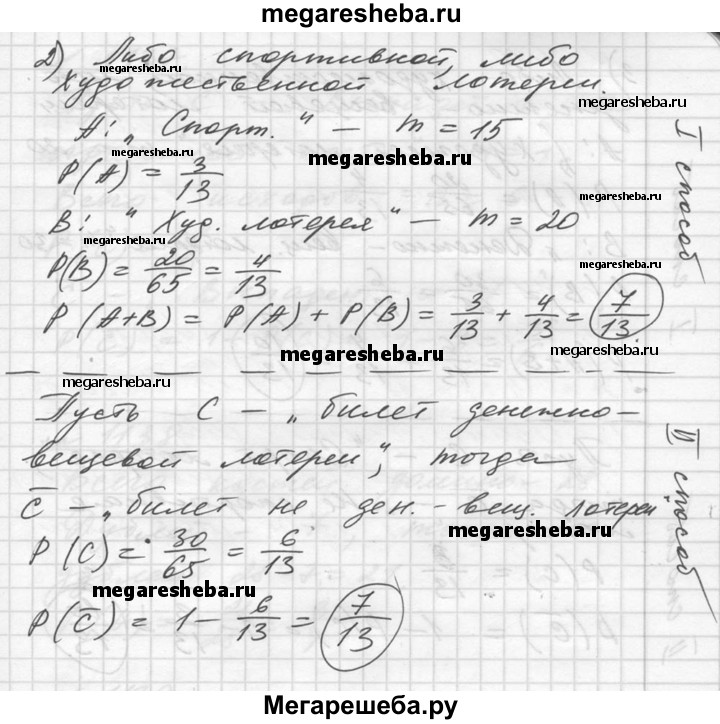 megaresheba.ru
2) Либо спортивной, либо
megaresheba.ru
художественной лотереи.
megaresheba.ru
A: „Спорт.“ — m = 15
megaresheba.ru
megaresheba.ru
P(A) = 3/13
B: „Худ. лотерея“ — m = 20
megaresheba.ru
P(B) = 20/65 = 4/13
megaresheba.ru
P(A+B) = P(A) + P(B) = 3/13 + 4/13 = 7/13
I способ
megaresheba.ru
megaresheba.ru
megaresheba.ru
Пусть C — „билет денежно-
вещевой лотереи“, тогда
C̅ — „билет не ден.-вещ. лотереи
megaresheba.ru
P(C) = 30/65 = 6/13
megaresheba.ru
P(C̅) = 1 - 6/13 = 7/13
II способ
Мегарешеба.ру